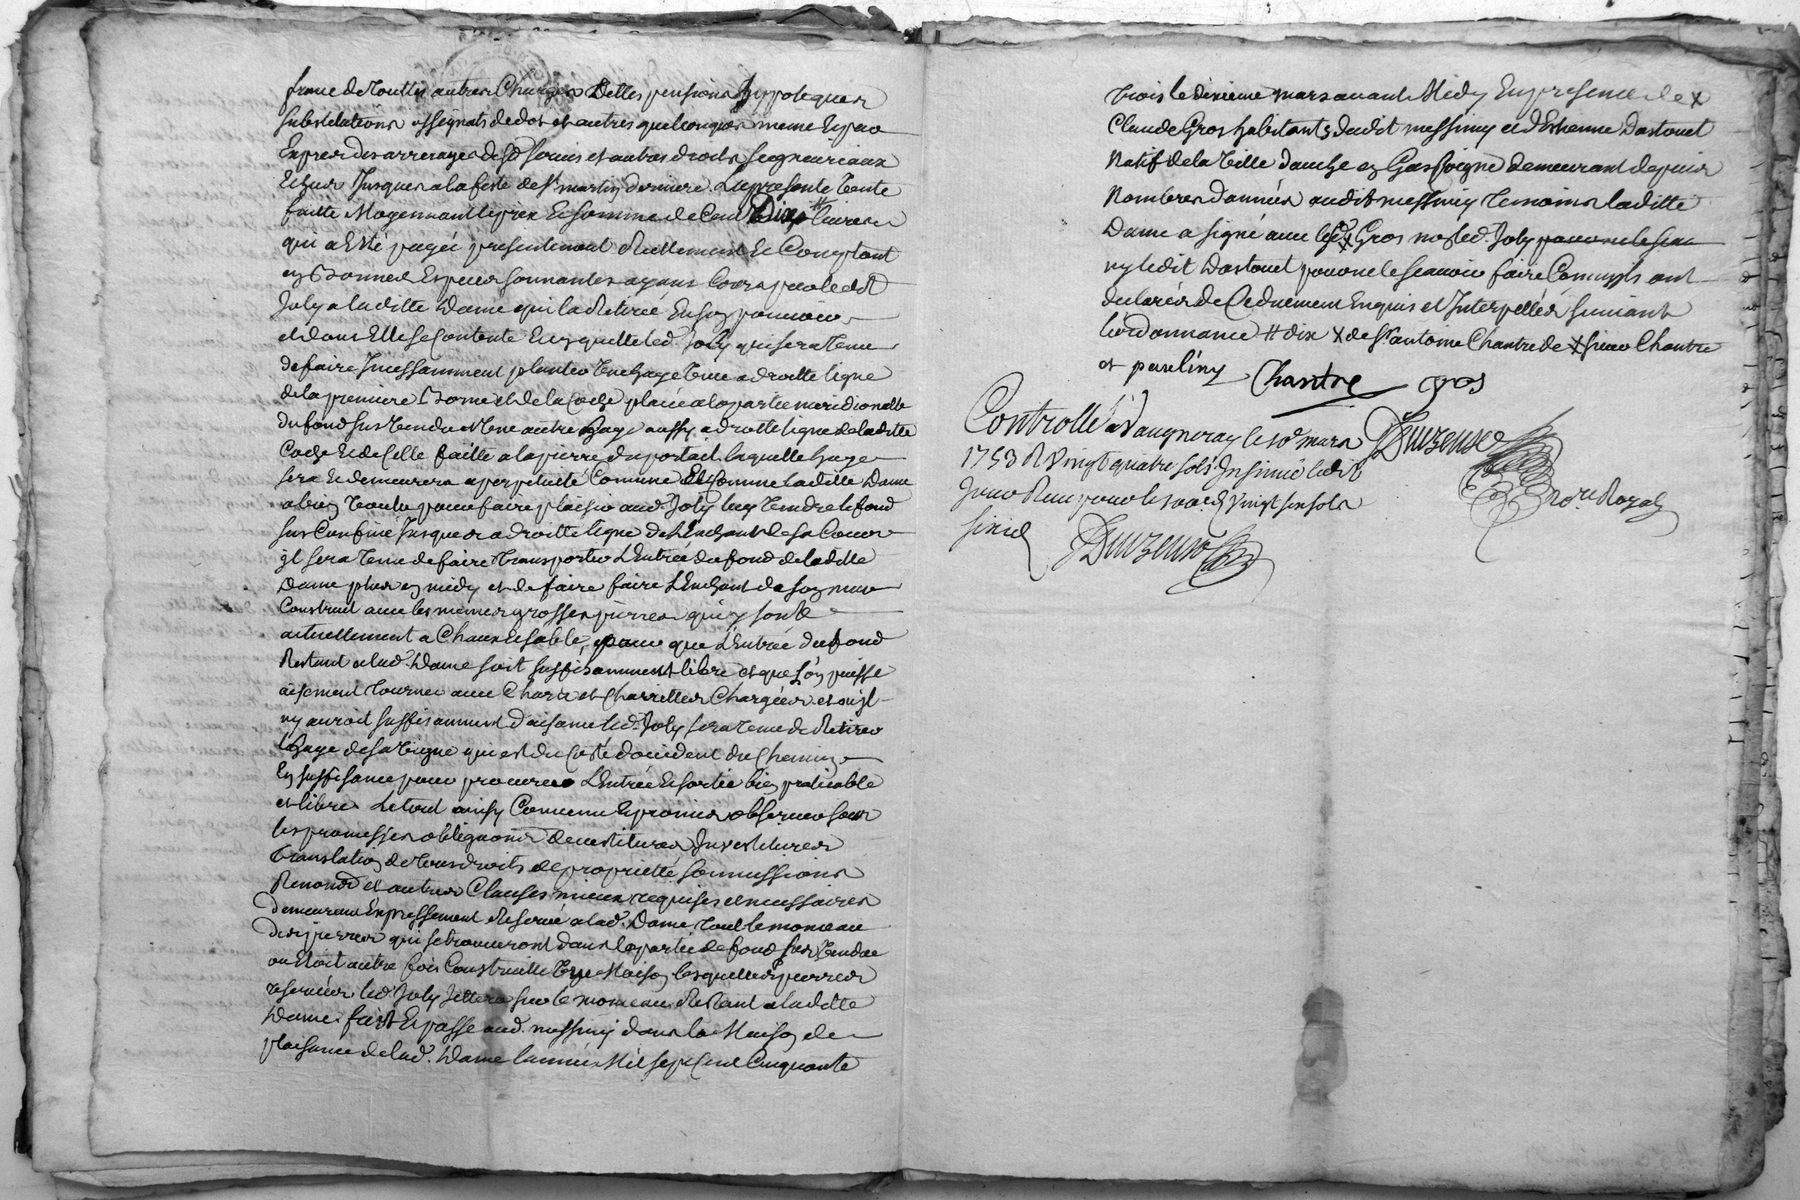 franc de touttes autres Charges Debtes pensions hyppoteques
substitutions assignats de dot et autres quelconques meme
Expres des arrerages de sd servis et autres droits seigneuriaux
Echus Jusques a la feste de st martin derniere. La presente vente
faitte Moyennant le prix Et somme de Cent Dix # livres
qui a Esté payée presentement Reellement Et Comptant
en bonnes Especes sonnantes ayant Cours par ledit
Joly a laditte Dame qui l'a Retirée
et dont Elle se Contente Et quitte led. Joly qui sera tenu
de faire Incessamment planter une haye vive a droitte ligne
de la premiere borne et de la Coche placée a la partie meridionalle
du fond sus vendu et une autre haye aussy a droitte ligne de laditte
Coche Et de Celle faitte a la pierre du portail laquelle haye
sera Et demeurera a perpetuité Comune Et Comme laditte Dame
a bien voulu pour faire plaisir aud. Joly luy vendre le fond
sus Confiné Jusques a droitte ligne de L'Enchant de sa Cour
il sera tenu de faire transporter L'Entrée du fond de laditte
Dame plus en midy et de faire faire L'Enchant de son mur
Construit avec les memes grosses pierres qui y sont
actuellement a Chaux Et sable, pour que L'Entrée du fond
Restant a lad. Dame soit suffisamment libre et que L'on puisse
aisement tourner avec Chars et Charrettes Chargées et s'il
n'y auroit suffisamment d'aisance led. Joly sera tenu de Retirer
l'haye de sa vigne qui est du Costé d'occident du Chemin
En suffisance pour procurer L'Entrée Et sortie bien praticable
et libre. Le tout ainsy Convenu Et promis observer sous
les promesses obligations devestitures Investitures
translation de tous droits de proprietté soumissions
Renonons et autres Clauses mieux requises et necessaires
demeurant Expressement Reservé a lad. Dame tout le monceau
des pierres qui se trouveront dans la partie de fond sus vendue
ou Etoit autre fois Construitte une Maison lesquelles pierres
reservées led. Joly Jettera sur le monceau Restant a laditte
Dame. fait Et passé aud. messimy dans la Maison de
plaisance de lad. Dame l'année Mil sept Cent Cinquante
trois le dixieme mars avant Midy En presence de x
Claude Gros habitants dudit messimy et d'Estienne Dastouet
Natif de la ville d'auche en Gascoigne demeurant depuis
Nombres d'années audit messimy temoins laditte
Dame a signé avec led. x Gros non led. Joly pour ne le sçav
ny ledit Dastouet pour ne le sçavoir faire Comme ils ont
declarés de Ce duement Enquis et Interpellés suivant
l'ordonnance # dix x de st antoine Chantre de x sieur Chantre
et
Chantre gros
Controllé a Vaugneray le 10e mars
1753 R Vingt quatre sols Insinué ledit
Jour Reçu pour le 100e d. Vingt six sols
six d
No.re Royal